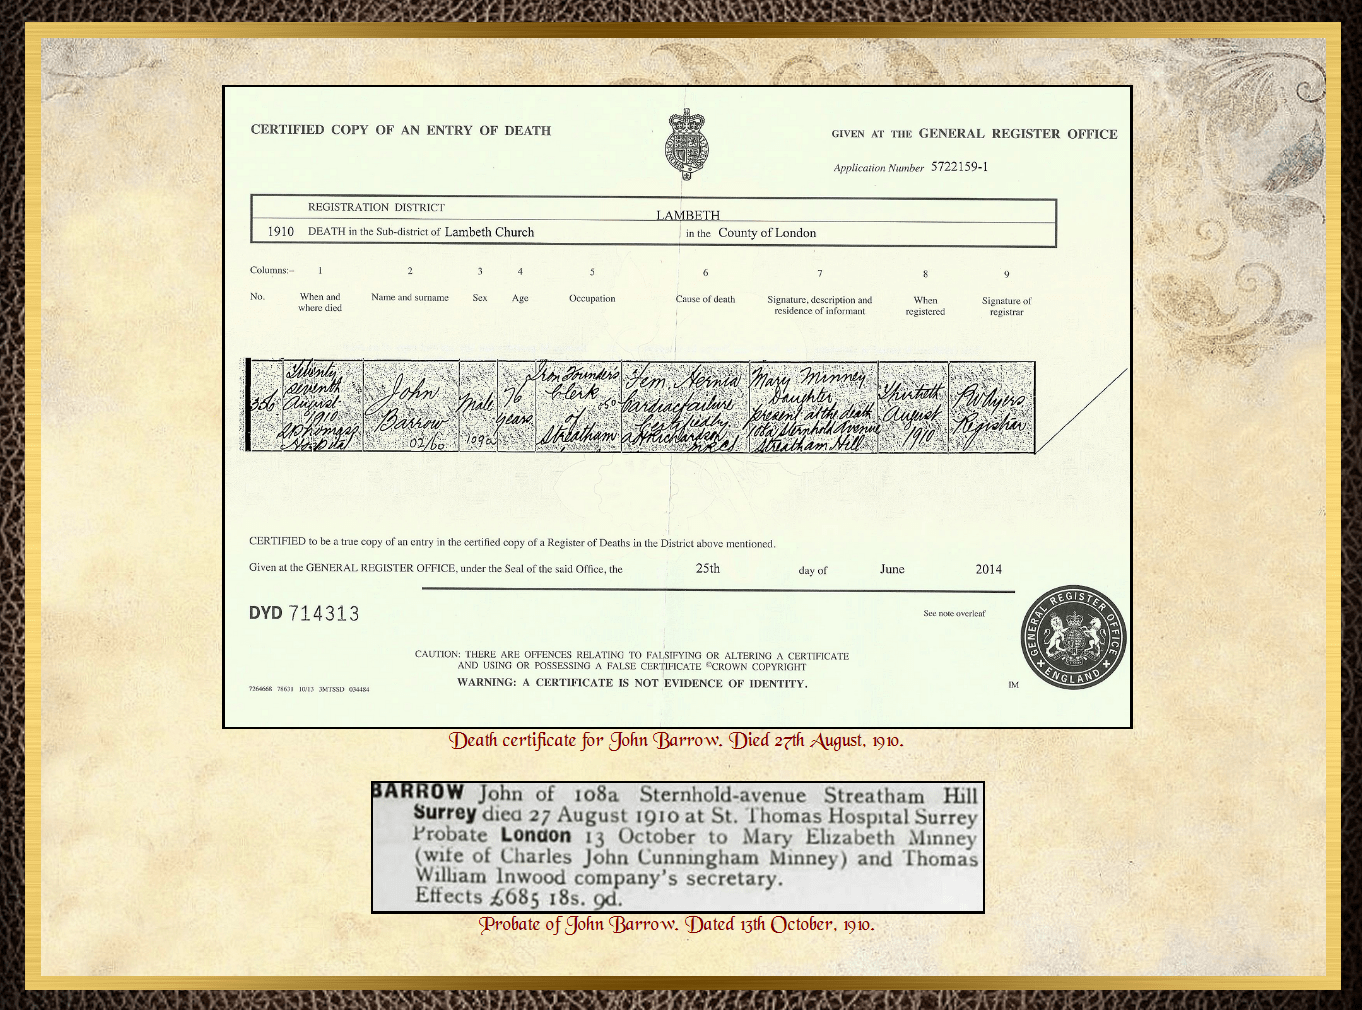 CERTIFIED COPY OF AN ENTRY OF DEATH
GIVEN AT THE GENERAL REGISTER OFFICE
Application Number 5722159-1
REGISTRATION DISTRICT
LAMBETH
1910 DEATH in the Sub-district of Lambeth Church in the County of London
Columns:- 1 2 3 4 5 6 7 8 9
No. When and where died Name and surname Sex Age Occupation Cause of death Signature, description and residence of informant When registered Signature of registrar
356
Twenty
seventh
August
1910
St Thomas's
Hospital
John
Barrow
Male
76
years
Iron Founders
Clerk
of
Streatham
Fem. Hernia
Cardiac failure
Certified by
Richardson
Mary Minney
Daughter
Present at the death
Sternhold Avenue
Streatham Hill
Thirtieth
August
1910
Registrar
CERTIFIED to be a true copy of an entry in the certified copy of a Register of Deaths in the District above mentioned.
Given at the GENERAL REGISTER OFFICE, under the Seal of the said Office, the 25th day of June 2014
DYD 714313
See note overleaf
CAUTION: THERE ARE OFFENCES RELATING TO FALSIFYING OR ALTERING A CERTIFICATE
AND USING OR POSSESSING A FALSE CERTIFICATE ©CROWN COPYRIGHT
WARNING: A CERTIFICATE IS NOT EVIDENCE OF IDENTITY.
7264668 76631 10/13 3MTSSD 034484
IM
GENERAL REGISTER OFFICE
ENGLAND
Death certificate for John Barrow. Died 27th August, 1910.
BARROW John of 108a Sternhold-avenue Streatham Hill
Surrey died 27 August 1910 at St. Thomas Hospital Surrey
Probate London 13 October to Mary Elizabeth Minney
(wife of Charles John Cunningham Minney) and Thomas
William Inwood company's secretary.
Effects £685 18s. 9d.
Probate of John Barrow. Dated 13th October, 1910.